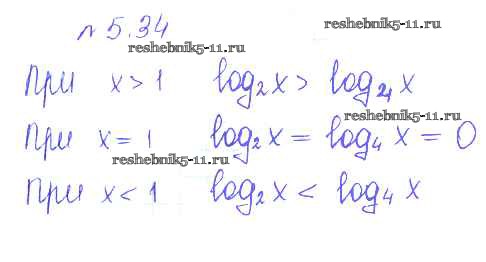 № 5.34
reshebnik5-11.ru
reshebnik5-11.ru
При x > 1 log₂x > log₄x
reshebnik5-11.ru
При x = 1 log₂x = log₄x = 0
reshebnik5-11.ru
При x < 1 log₂x < log₄x